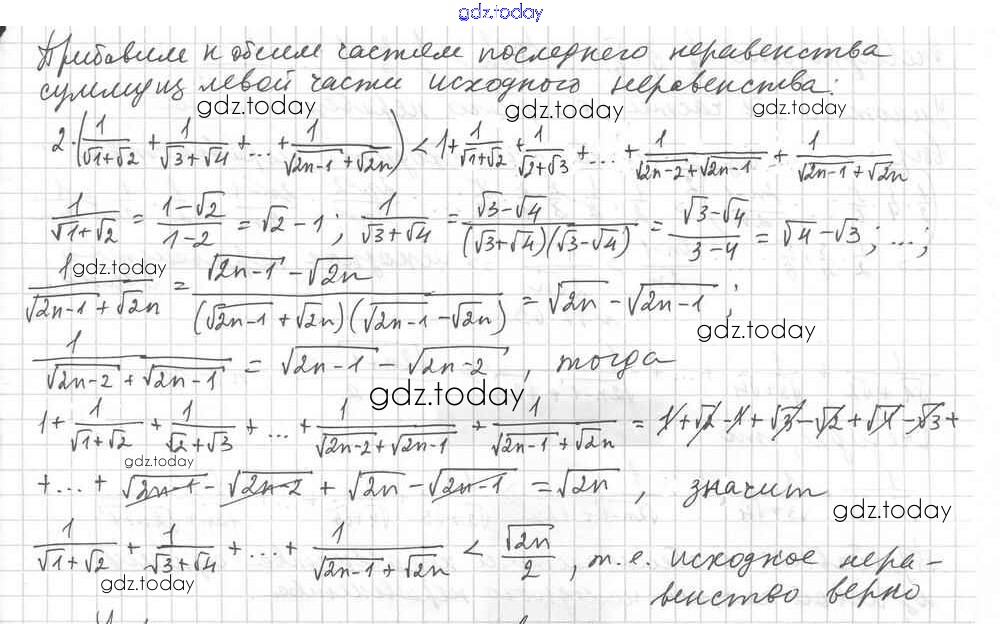 gdz.today
Прибавим к обеим частям последнего неравенства
сумму из левой части исходного неравенства:
gdz.today gdz.today gdz.today
2·(1/(√1+√2) + 1/(√3+√4) + ... + 1/(√2n-1 + √2n)) < 1 + 1/(√1+√2) + 1/(√2+√3) + ... + 1/(√2n-2 + √2n-1) + 1/(√2n-1 + √2n)
1/(√1+√2) = (1-√2)/(1-2) = √2 - 1; 1/(√3+√4) = (√3-√4)/((√3+√4)(√3-√4)) = (√3-√4)/(3-4) = √4 - √3; ...;
gdz.today
1/(√2n-1 + √2n) = (√2n-1 - √2n)/((√2n-1 + √2n)(√2n-1 - √2n)) = √2n - √2n-1;
gdz.today
1/(√2n-2 + √2n-1) = √2n-1 - √2n-2, тогда
gdz.today
1 + 1/(√1+√2) + 1/(√2+√3) + ... + 1/(√2n-2 + √2n-1) + 1/(√2n-1 + √2n) = 1 + √2 - 1 + √3 - √2 + √4 - √3 +
gdz.today
+ ... + √2n-1 - √2n-2 + √2n - √2n-1 = √2n, значит
gdz.today
1/(√1+√2) + 1/(√3+√4) + ... + 1/(√2n-1 + √2n) < √2n/2, т.е. исходное нера-
gdz.today
венство верно